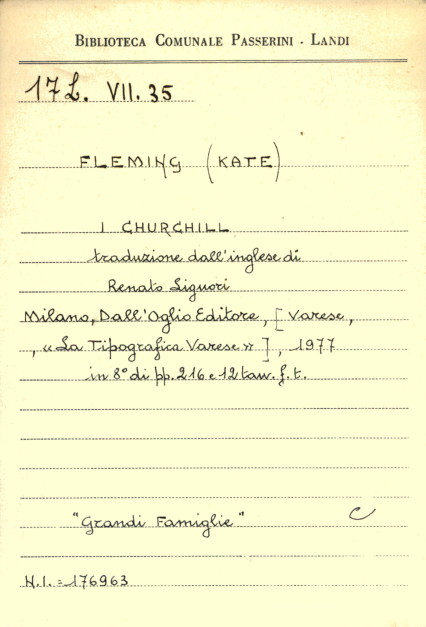 BIBLIOTECA COMUNALE PASSERINI - LANDI
17L. VII. 35
FLEMING (KATE)
I CHURCHILL
traduzione dall'inglese di
Renato Liguori
Milano, Dall'Oglio Editore, [Varese,
, «La Tipografica Varese»], 1977
in 8° di pp. 216 e 12 tav. f. t.
"Grandi Famiglie" C
N.I. = 176963